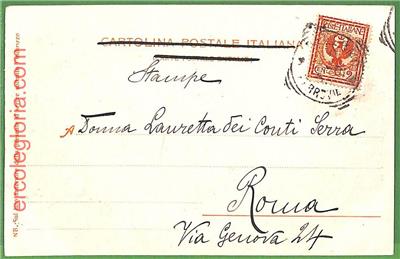 CARTOLINA POSTALE ITALIANA
POSTE ITALIANE
CENT. 2
FERROVIE
Stampe
A Donna Lauretta dei Conti Serra
Roma
Via Genova 24
ercolegloria.com
NB.